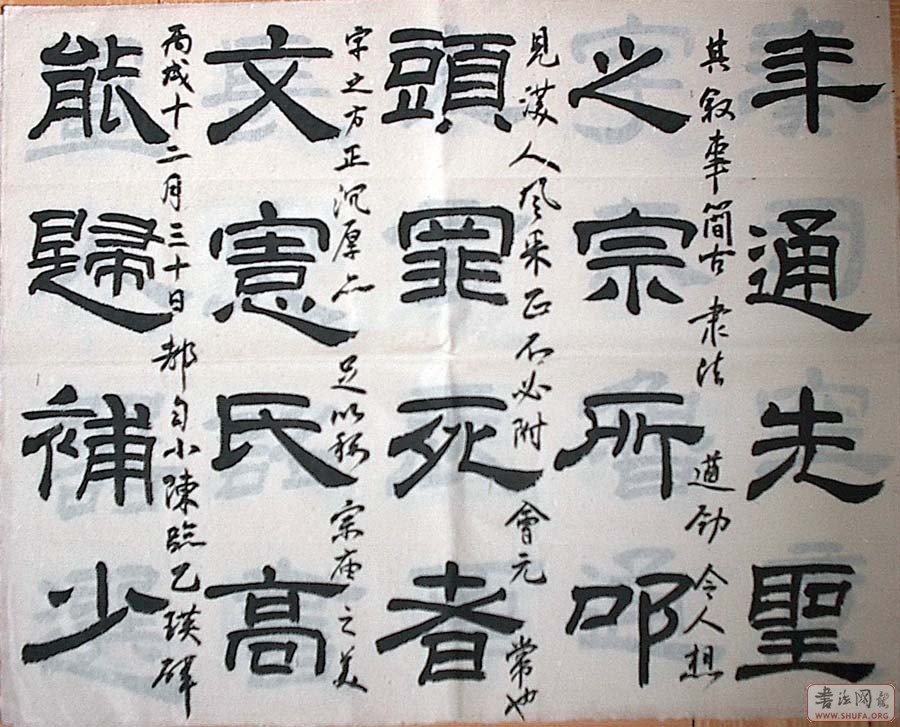 年通先聖
其叙事簡古隸法遒勁令人想
之宗所叩
見漢人風采正不必附會元常也
頭罪死者
字之方正沉厚亦足以称宗庙之美
文憲氏高
丙戌十二月三十日都匀小陳臨乙瑛碑
能歸補少
書法网
WWW.SHUFA.ORG